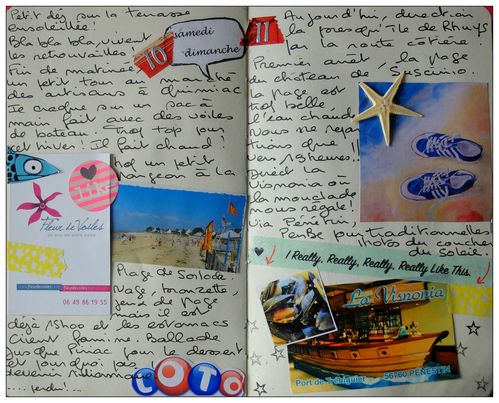 Petit déj sur la terrasse
ensoleillée!
Bla bla bla, vivent
les retrouvailles.
Fin de matinée,
un petit tour au marché
des artisans à Quimiac
Je craque sur un sac à
main fait avec des voiles
de bateau. Trop top pour
cet hiver! Il fait chaud!
un petit
plongeon à la
10
samedi
dimanche
Like
Fleur de Voiles
06 49 86 19 55
Plage de Sorlock
Nage, bronzette,
jeux de plage
mais il est
déjà 15h00 et les estomacs
crient famine. Ballade
jusque Piriac pour le dessert
et pourquoi pas
devenir millionnaire
.... perdu!...
LOTO
11
Aujourd'hui, direction
la presqu'île de Rhuys
par la route côtière!
Premier arrêt, la plage
du château de Suscinio.
La plage est
trop belle,
l'eau chaude
Nous ne repar
tirons que
vers 13 heures!!
Direct la
Visnonia où
la mouclade
nous régale!
Via Pénerin,
Pense pour traditionnelles
photos du coucher
du soleil.
I Really, Really, Really, Really Like This.
La Visnonia
Port de Tréhiguier
56760 PENESTIN